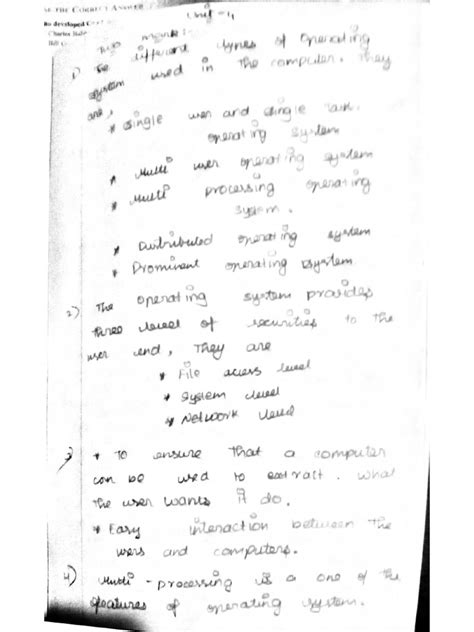 Choose the Correct Answer
Who developed C
Charles Bab
Bill G
Unit - 4
Two mark:-
1) The different types of operating
system used in the computer. They
are,
* Single user and single task.
operating system
* Multi user operating system
* Multi processing operating
system.
* Distributed operating system
* Prominent operating system
2) The operating system provides
three level of securities to the
user end, They are
* File access level
* System level
* Network level
3) * To ensure that a computer
can be used to extrait. what
the user wants it do.
* Easy interaction between the
users and computers.
4) Multi - processing is a one of the
features of operating system.